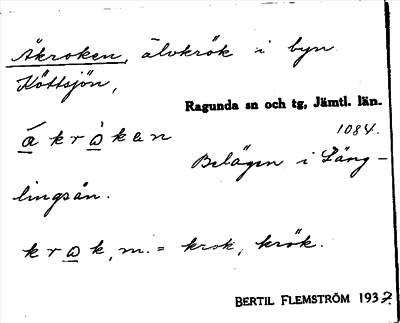 Åkroken, älvkrök i byn
Köttsjön,
Ragunda sn och tg, Jämtl. län.
1084.
á k r ò k e n
Belägen i Läng-
lingsån.
k r ω k, m. = krok, krök.
BERTIL FLEMSTRÖM 1937.